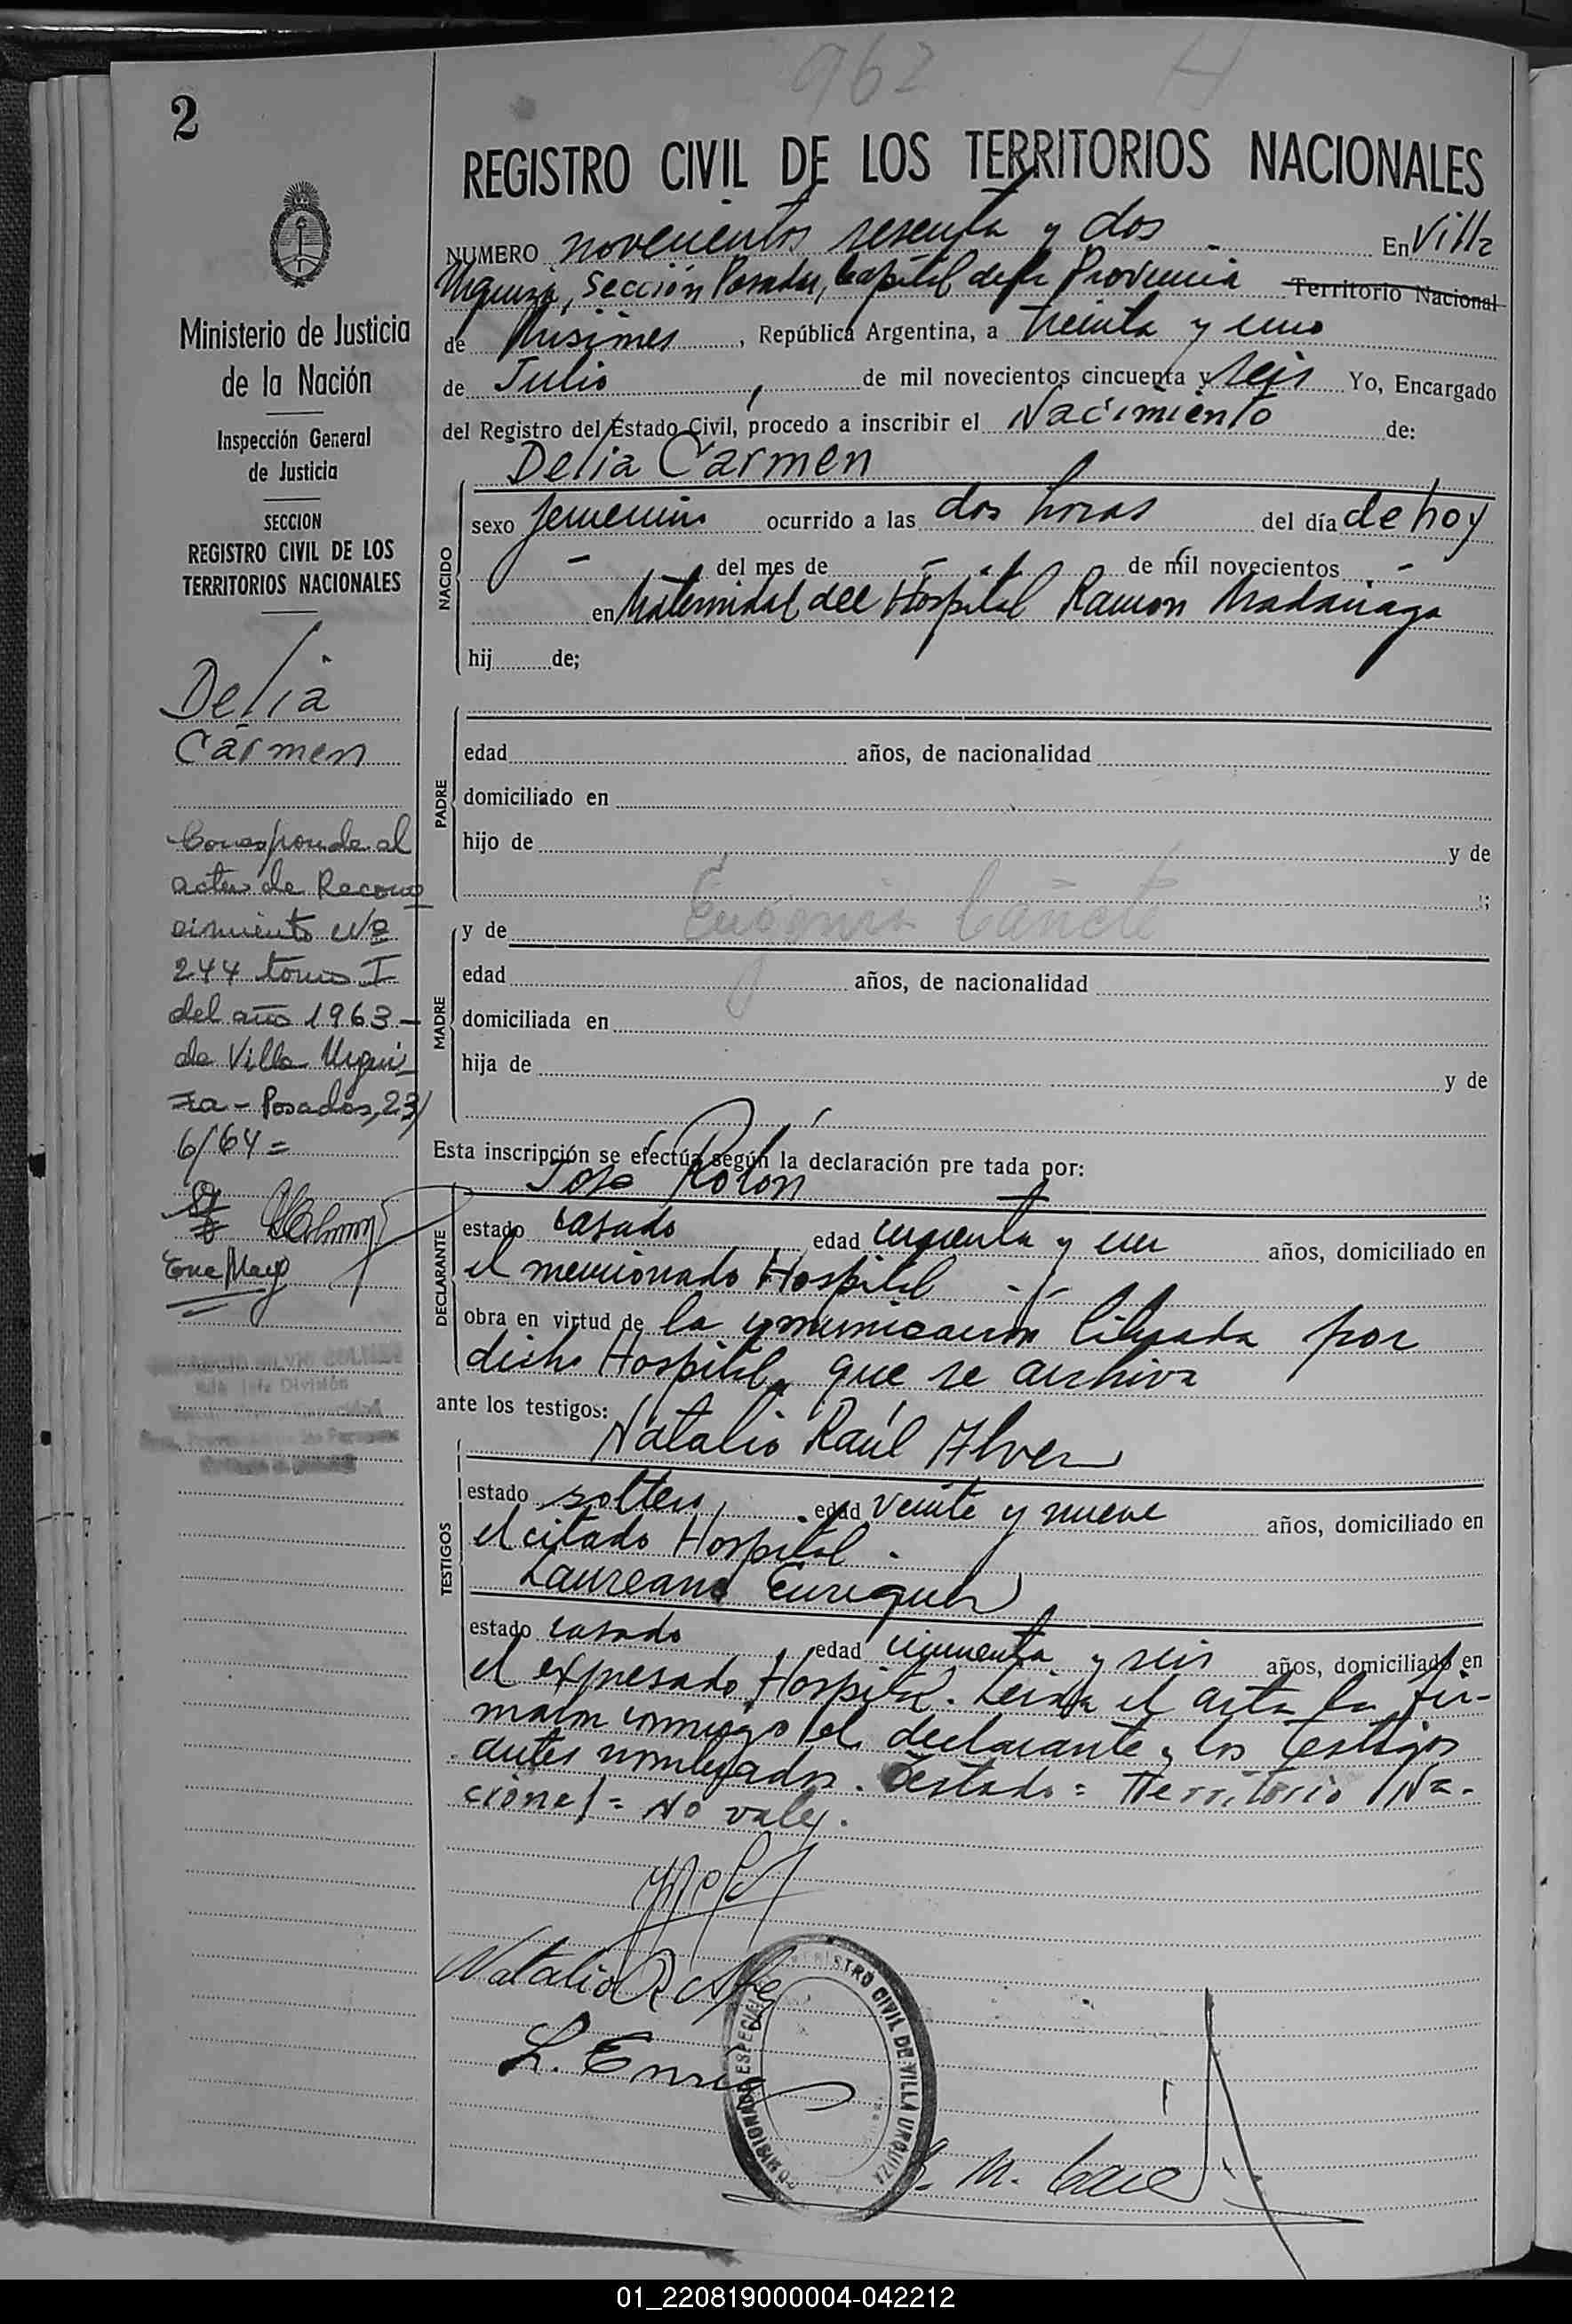 962 H
2
REGISTRO CIVIL DE LOS TERRITORIOS NACIONALES
NUMERO novecientos sesenta y dos En Villa
Urquiza, Sección Posadas, Capital de la Provincia Territorio Nacional
de Misiones, República Argentina, a treinta y uno
de Julio, de mil novecientos cincuenta y seis Yo, Encargado
del Registro del Estado Civil, procedo a inscribir el Nacimiento de:
Delia Carmen
NACIDO
sexo femenino ocurrido a las dos horas del día de hoy
- del mes de - de mil novecientos -
en Maternidad del Hospital Ramon Madariaga
hij de;
PADRE
edad años, de nacionalidad
domiciliado en
hijo de y de
;
MADRE
y de Eugenia Cañete
edad años, de nacionalidad
domiciliada en
hija de y de
Esta inscripción se efectúa según la declaración pre tada por:
José Rolón
DECLARANTE
estado casado edad cincuenta y un años, domiciliado en
el mencionado Hospital
obra en virtud de la comunicación librada por
dicho Hospital, que se archiva
ante los testigos:
Natalio Raúl Alvez
TESTIGOS
estado soltero, edad veinte y nueve años, domiciliado en
el citado Hospital.
Laureano Enriquez
estado casado edad cincuenta y seis años, domiciliado en
el expresado Hospital. Leida el acta la fir-
maron conmigo el declarante y los testigos
antes nombrados. Testado: Territorio Na-
cional = No vale.
Natalio R
L. Enriq
REGISTRO CIVIL DE VILLA URQUIZA
COMISIONADO ESPECIAL
Ministerio de Justicia
de la Nación
Inspección General
de Justicia
SECCION
REGISTRO CIVIL DE LOS
TERRITORIOS NACIONALES
Delia
Carmen
Corresponde al
acta de Recono
cimiento Nº
244 tomo I
del año 1963 -
de Villa Urqui
za - Posadas, 23/
6/64 =
01_220819000004-042212